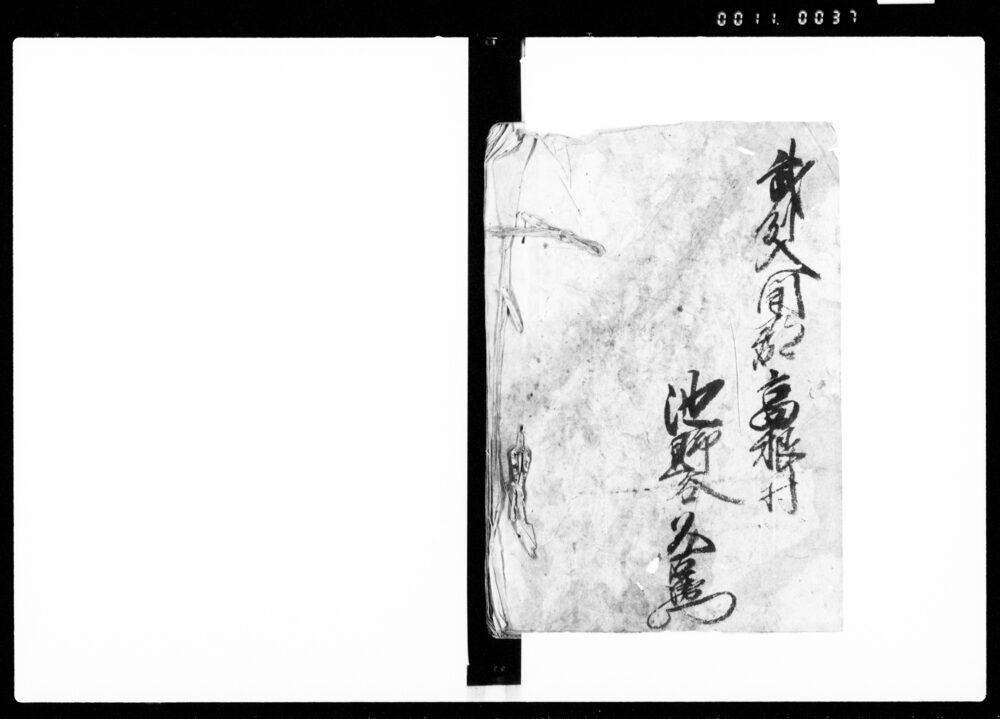 0011. 0037
武列入間郡高根村
池野谷